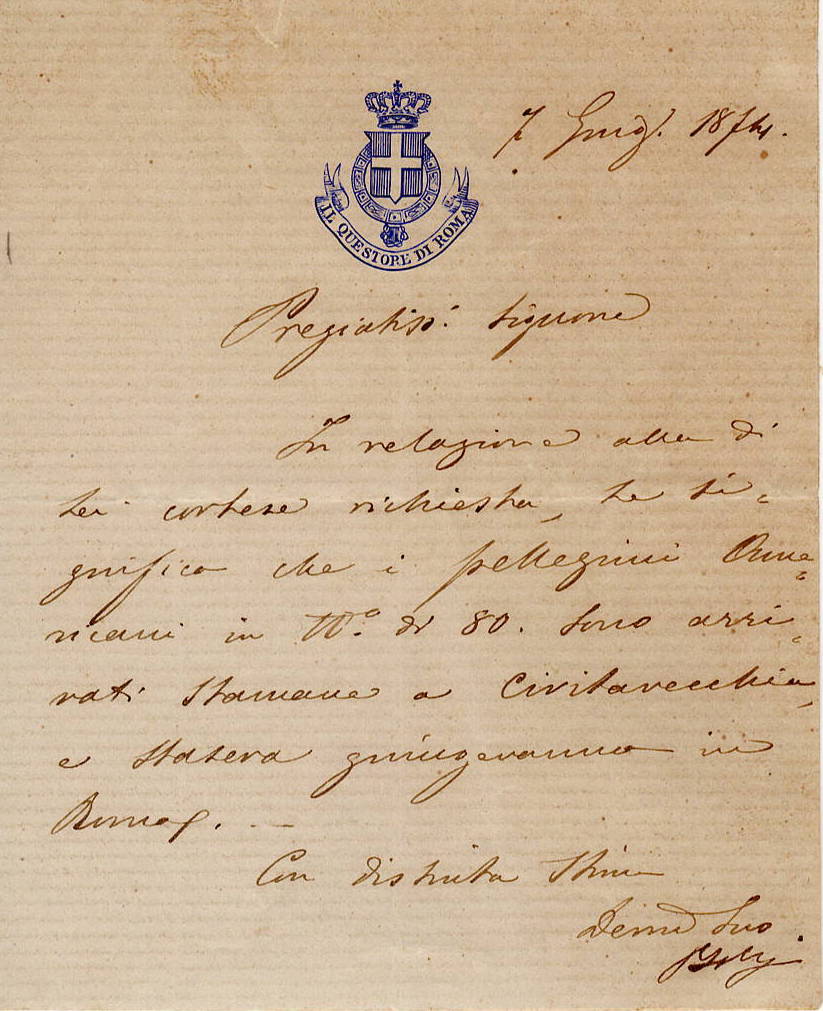 IL QUESTORE DI ROMA
7 Giug.º 1874.
Pregiatiss.º Signore
In relazione alla di
Lei cortese richiesta, Le si-
gnifico che i pellegrini Ame-
ricani in Nº. di 80. sono arri-
vati stamane a Civitavecchia,
e stasera giungeranno in
Roma. —
Con distinta stima
Suo